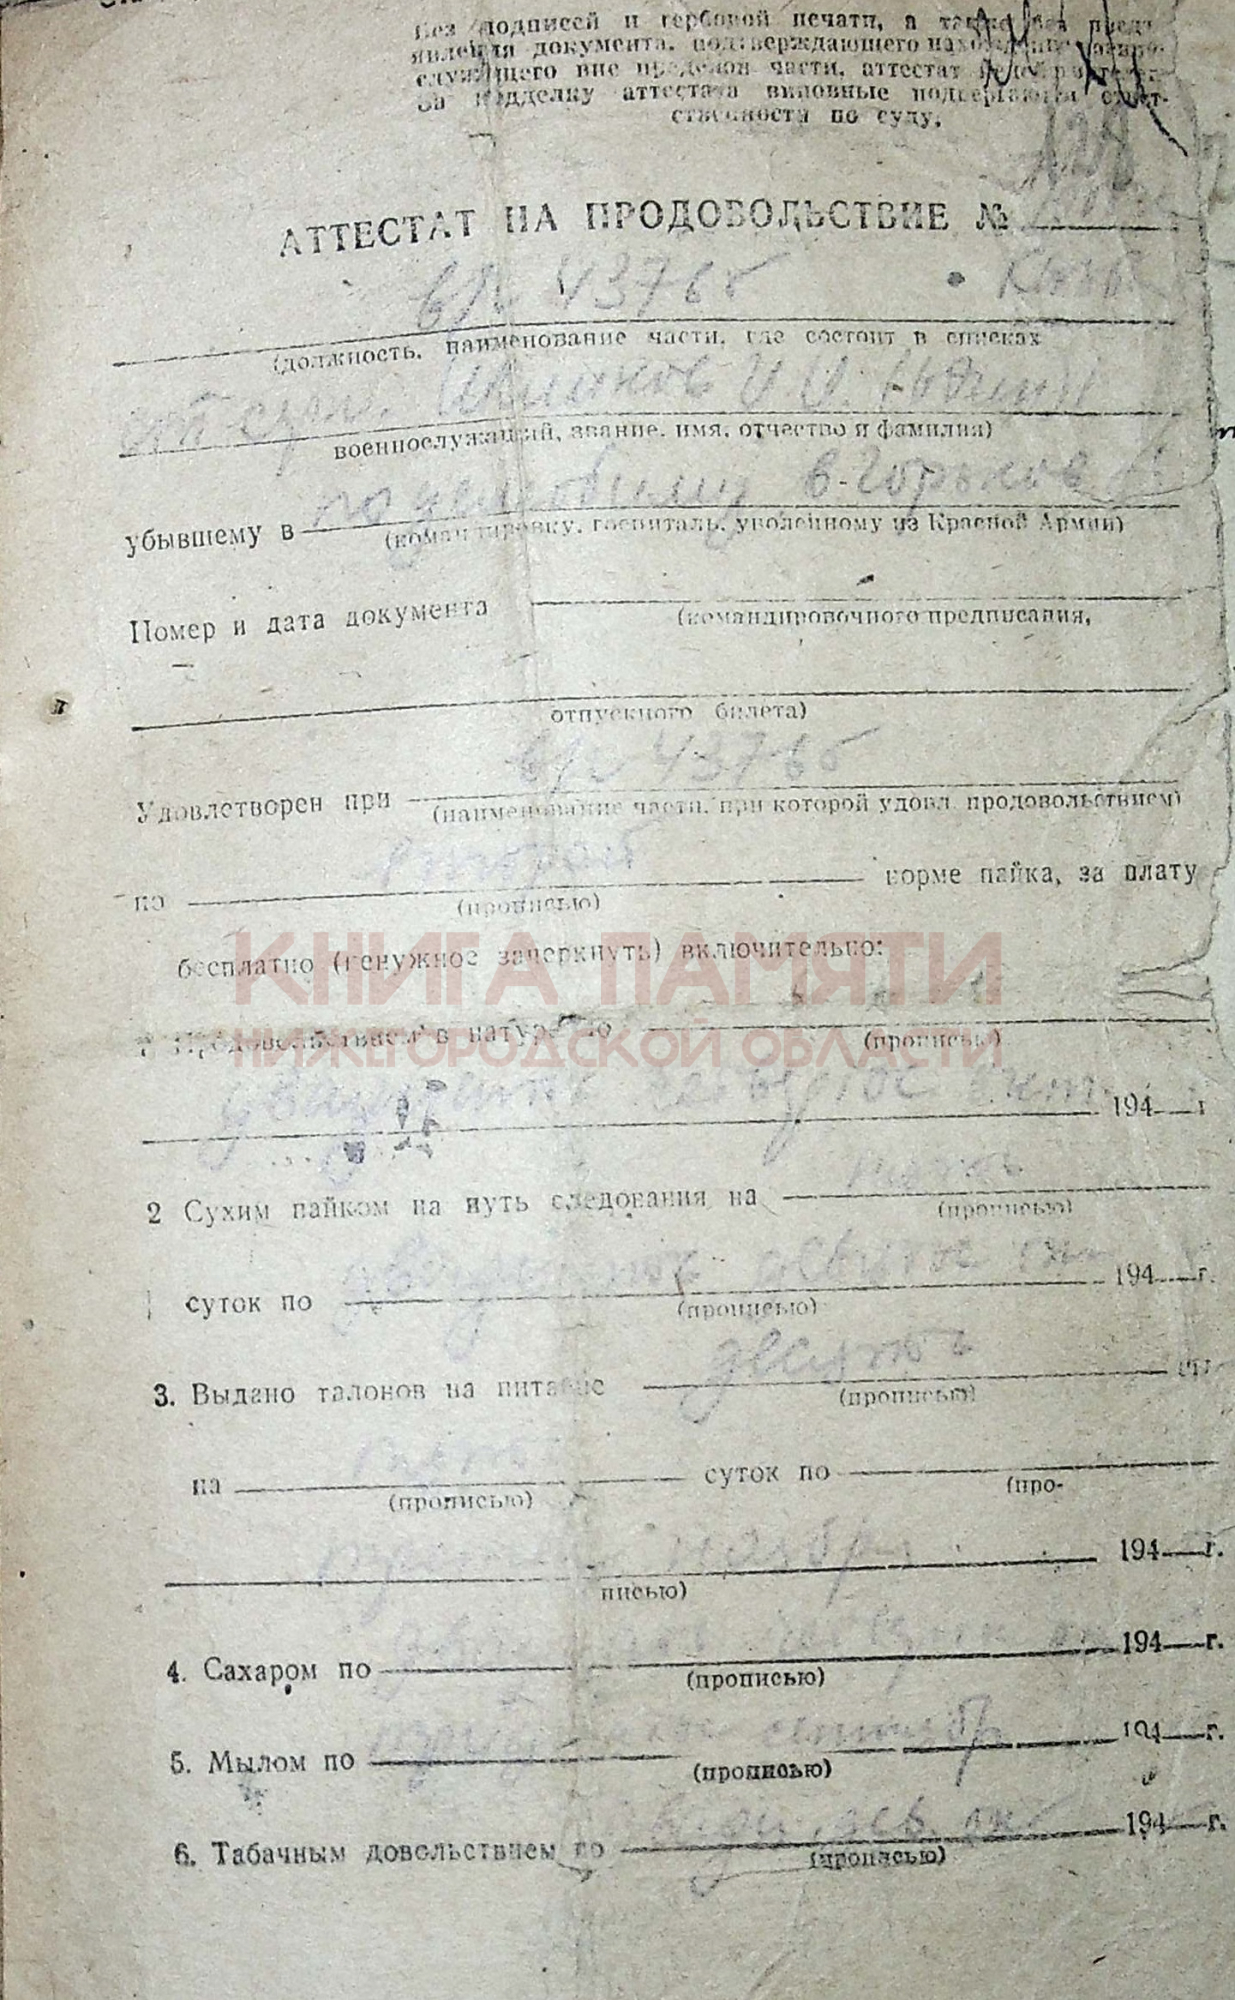 Без подписей и гербовой печати, а также без предъ-
явления документа, подтверждающего нахождение военно-
служащего вне пределов части, аттестат
За подделку аттестата виновные подвергаются ответ-
ственности по суду.
128
АТТЕСТАТ НА ПРОДОВОЛЬСТВИЕ №
в/ч 43765
(должность, наименование части, где состоит в списках
военнослужащий, звание, имя, отчество и фамилия)
убывшему в в Горьков
(командировку, госпиталь, уволенному из Красной Армии)
Номер и дата документа
(командировочного предписания,
отпускного билета)
в/ч 43765
Удовлетворен при
(наименование части, при которой удовл. продовольствием)
по второй норме пайка, за плату
(прописью)
бесплатно (ненужное зачеркнуть) включительно:
КНИГА ПАМЯТИ
НИЖЕГОРОДСКОЙ ОБЛАСТИ
Продовольствием в натуре по
(прописью)
двадцать четвертое окт. 194 г
2 Сухим пайком на путь следования на пять
(прописью)
суток по двадцать девятое 194 г.
(прописью)
3. Выдано талонов на питание десять шт.
(прописью)
на пять суток по
(прописью) (про-
ноября 194 г.
писью)
4. Сахаром по 194 г.
(прописью)
5. Мылом по 194 г.
(прописью)
6. Табачным довольствием по 194 г.
(прописью)